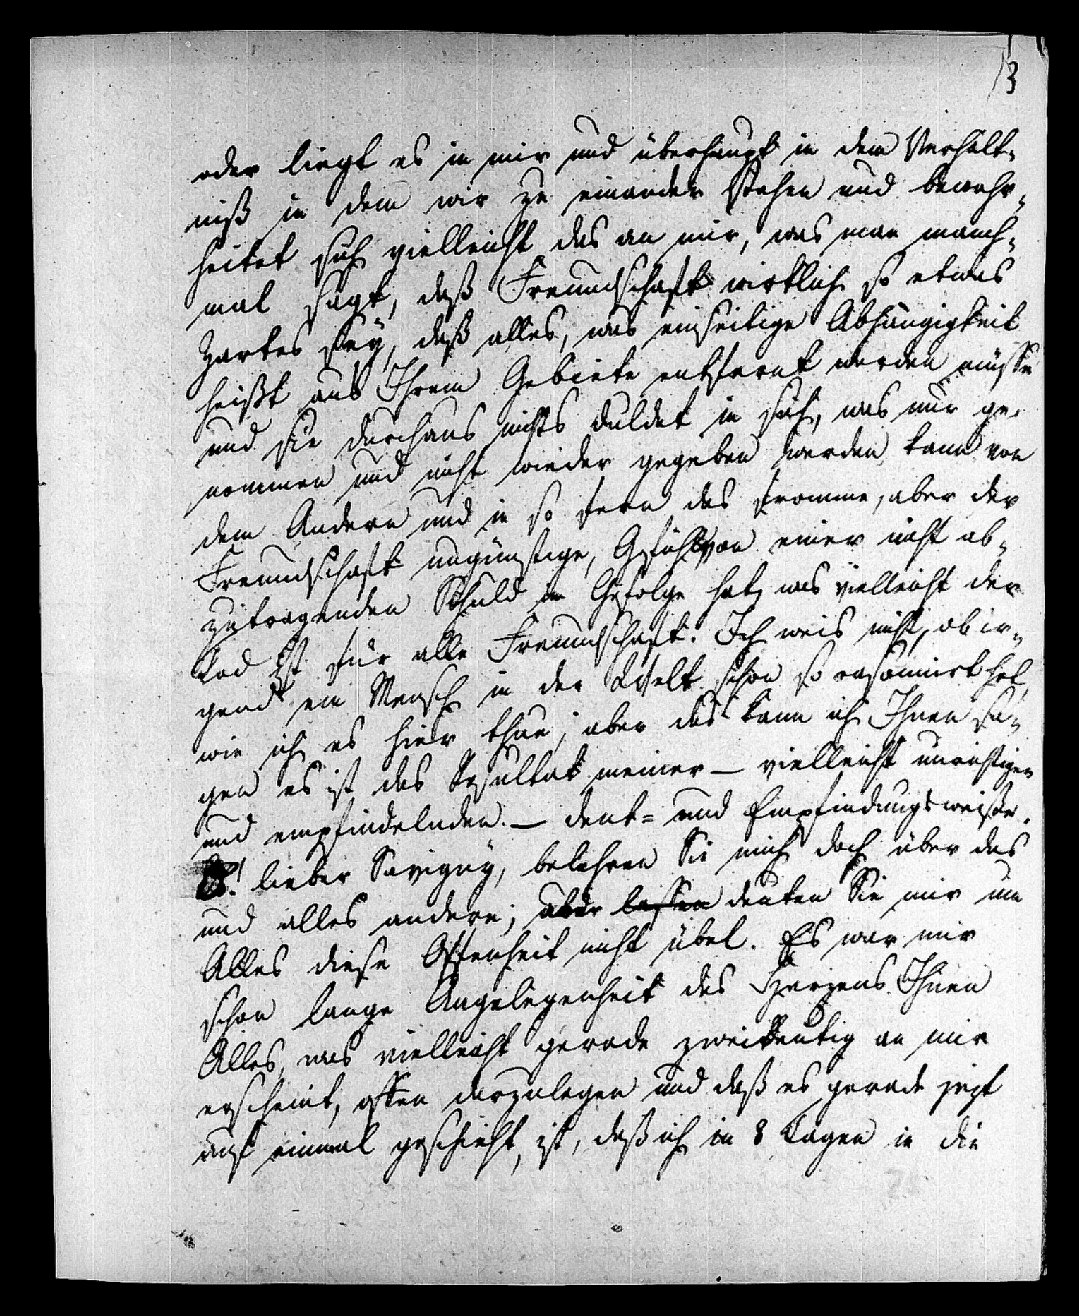 3
oder liegt es in mir und überhaupt in dem Verhält-
niß in dem wir zu einander stehen und bewahr-
heitet sich vielleicht das an mir, was man manch-
mal sagt, daß Freundschaft wirklich so etwas
Zartes sey, daß alles, was einseitige Abhängigkeit
heißt aus Ihrem Gebiete entfernt werden müsse
und sie durchaus nichts duldet in sich, was nur ge-
nommen und nicht wieder gegeben werden kann von
dem Andern und in so fern das fromme, aber der
Freundschaft ungünstige, Gefühl von einer nicht ab-
zutragenden Schuld im Gefolge hat, was vielleicht der
Tod ist für alle Freundschaft. Ich weis nicht, ob ir-
gend ein Mensch in der Welt schon so räsonnirt hat,
wie ich es hier thue; aber das kann ich Ihnen sa-
gen es ist das Resultat meiner — vielleicht unrichtigen
und empfindelnden. — Denk= und Empfindungsweise.
O! lieber Savigny, belehren Sie mich doch über das
und alles andere; aber lassen deuten Sie mir um
Alles diese Offenheit nicht übel. Es war mir
schon lange Angelegenheit des Herzens Ihnen
Alles, was vielleicht gerade zweideutig an mir
erscheint, offen darzulegen und daß es gerade jezt
auf einmal geschieht, ist, daß ich in 8 Tagen in die